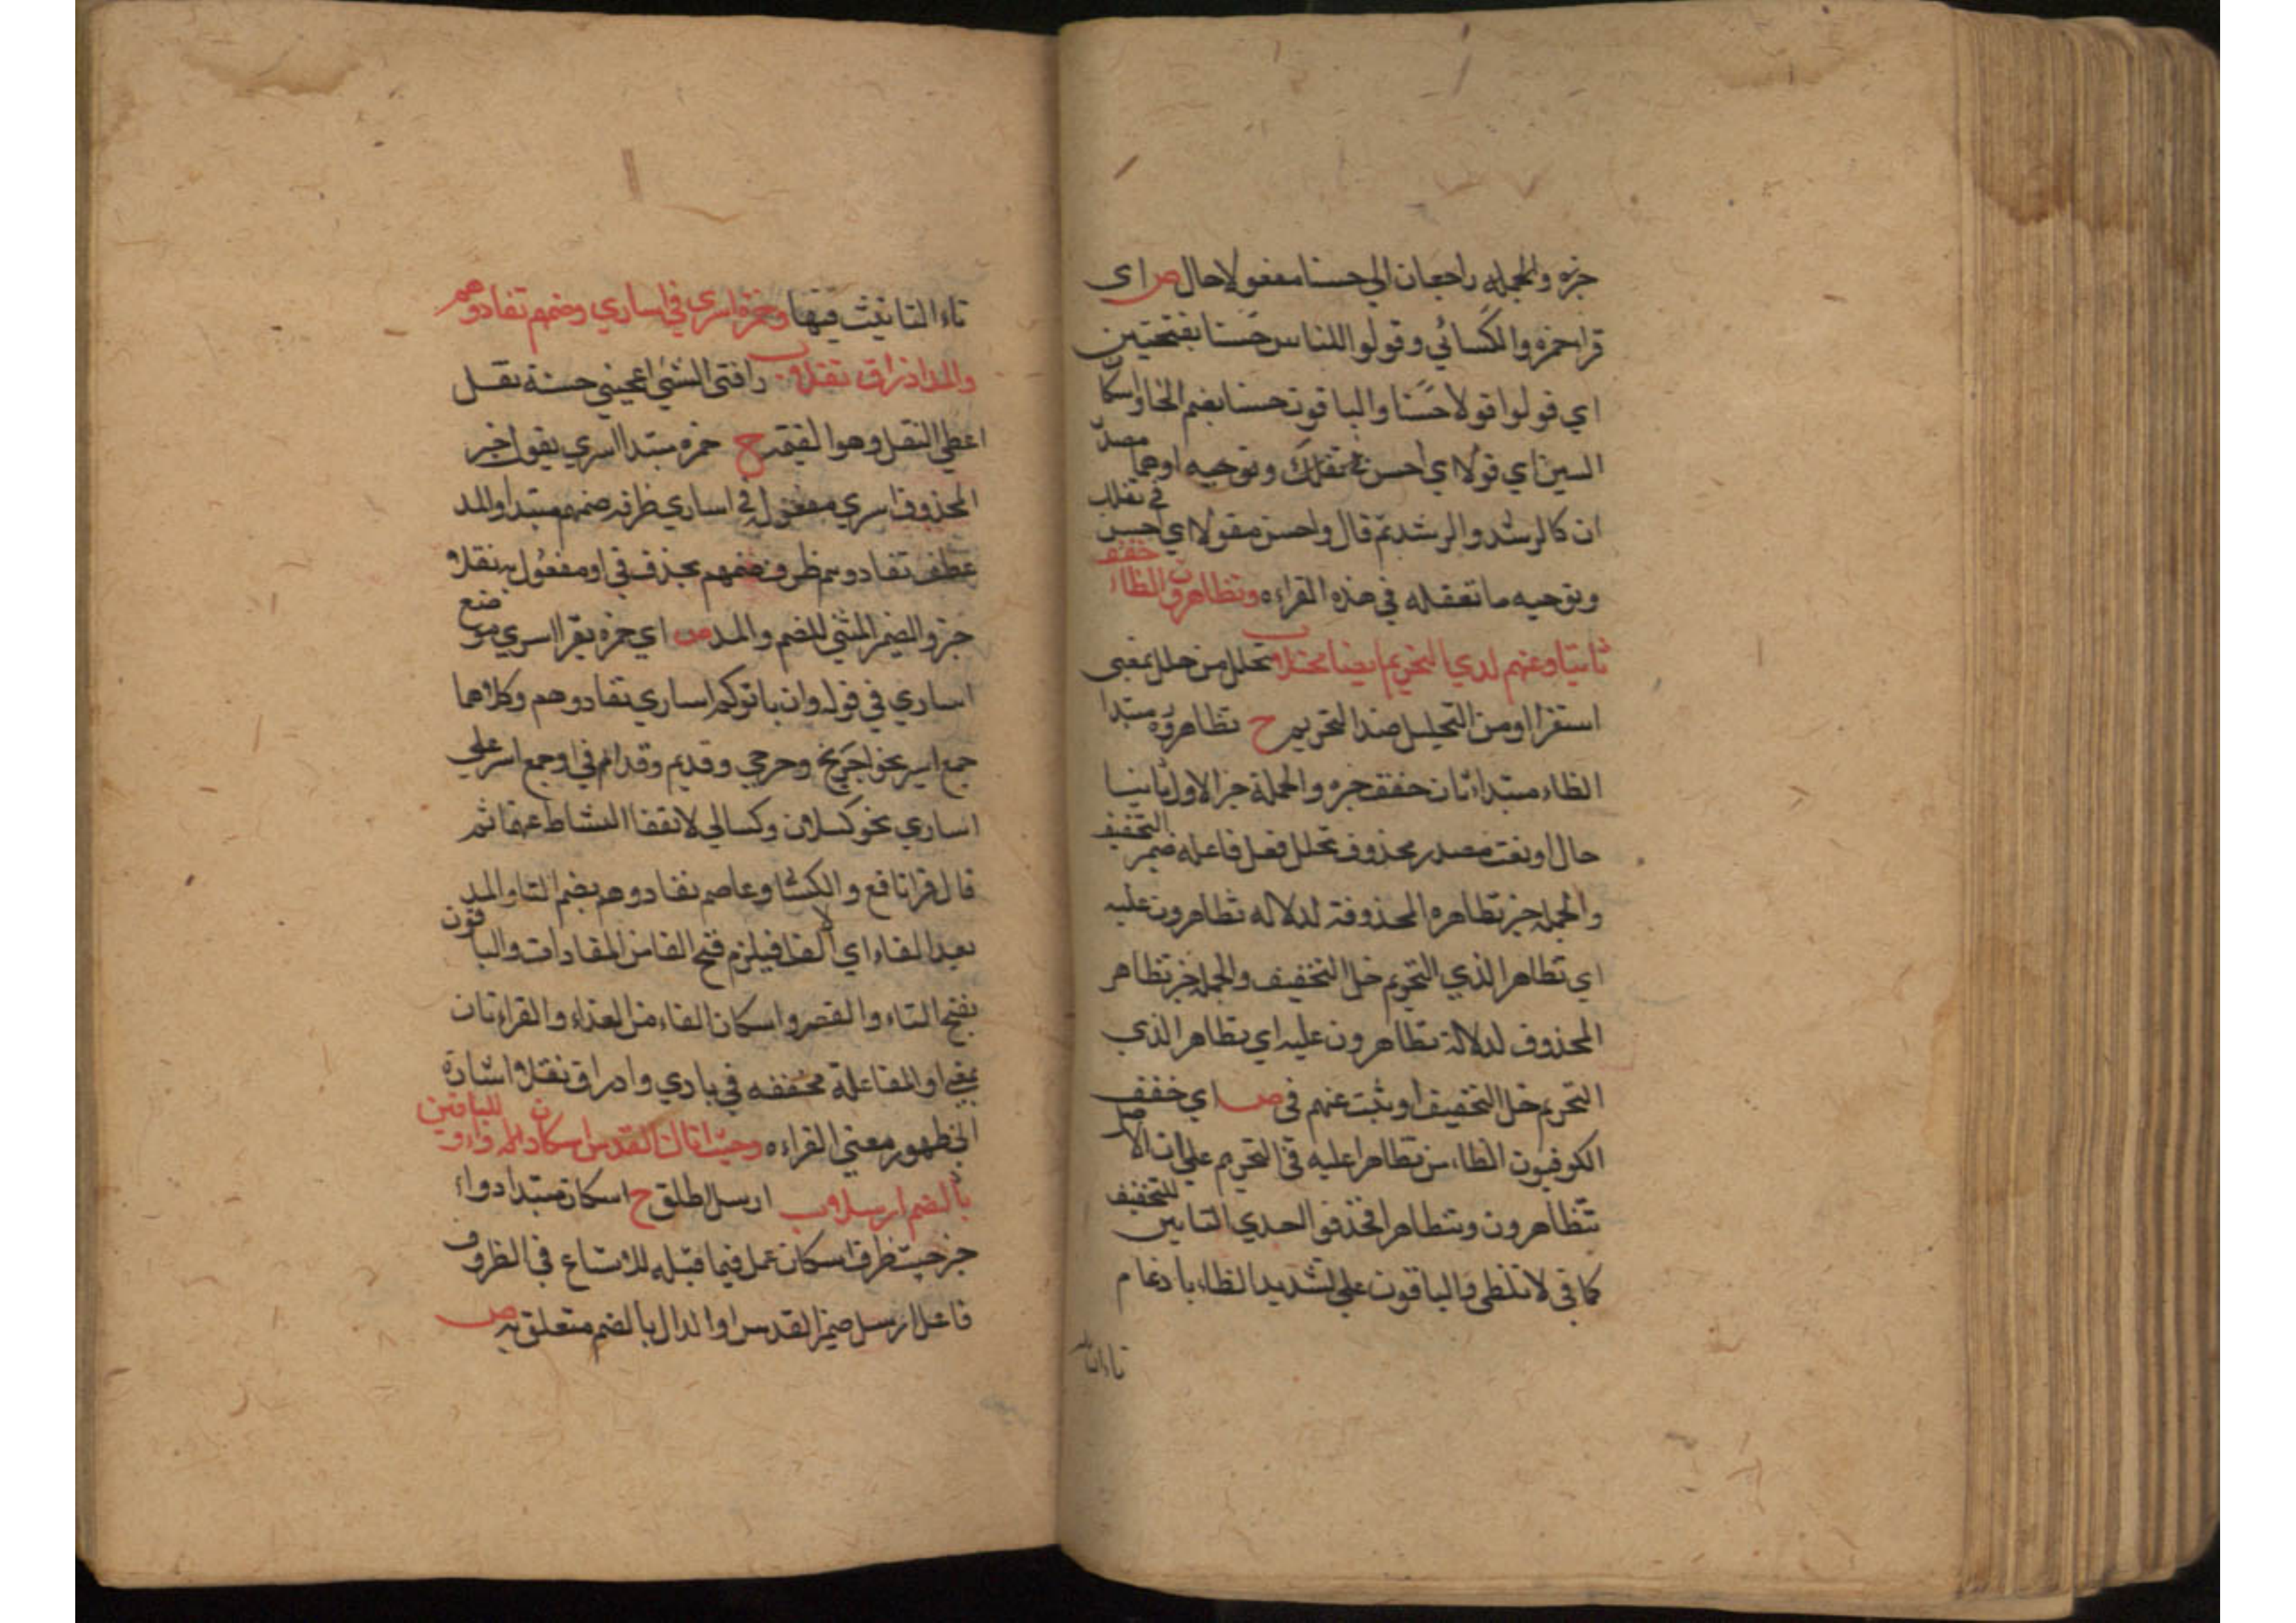 خبره والجمله راجعان الي حسنا مفعولا حال ص اي
قرا حمزه والكسائي وقولوا للناس حَسَنا بفتحتين
اي قولوا قولا حَسَنا والباقون حسنا بضم الحا واسكان
السين اي قولا اي احسن في تقلك وتوجيه اوهما مصدر
ان كالرشد والرشد ثم قال واحسن مقولا اي احسن في نقلك
وتوجيه ما تعقله في هذه القراءه وتظاهرون الظاء خفف
ثابتا وعنهم لدي التحريم ايضا تحللا ب تحلل من حلل بمعني
استقرا او من التحليل ضد التحريم ح تظاهرون مبتدا
الظاء مبتدا ثان خفف خبره والجملة خبر الاول ثابتا
حال او نعت مصدر محذوف تحلل فعل فاعله ضمير التخفيف
والجمله خبر تظاهره المحذوفة لدلاله تظاهرون عليه
اي تظاهر الذي التحريم حل التخفيف والجمله خبر تظاهر
المحذوف لدلالة تظاهرون عليه اي تظاهر الذي
التحريم حل التخفيف او يثبت عنهم في ص اي خفف
الكوفيون الظاء من تظاهرا عليه في التحريم علي ان الاصل
تتظاهرون وتتظاهرا فحذفوا احدي التايين للتخفيف
كما في لا تلظى والباقون علي تشديد الظاء بادغام
تاء التا
تاء التانيث فيها وحمزة اسري في اساري وضمهم تفادوهم
والمد اذ راق نفلا ب راقني الشيء اعجبني حسنة نفل
اعطي النفل وهو الغنيمه ح حمزه مبتدا اسري يقول خبر
المحذوف اسري مفعوله في اساري ظرفه ضمهم مبتدا والمد
عطف تفادوهم ظرف ضمهم بحذف في او مفعول به نفلا
خبر والضمير المثني للضم والمد ص اي حمزه يقرا اسري موضع
اساري في قوله وان ياتوكم اساري تفادوهم وكلاهما
جمع اسير نحو جريح وجرحي وقديم وقدامي او جمع اسري علي
اساري نحو كسلان وكسالي لانتفا النشاط عنها ثم
قال قرا نافع والكسا وعاصم تفادوهم بضم التا والمد
بعد الفاء اي الفا فيلزم فتح الفا من المفادات والباقون
بفتح التاء والقصر واسكان الفاء من الفداء والقراءتان
بمعني او المفاعلة مخففه في بادي واذ راق نفلا اشارة
الي ظهور معني القراءه وحيث اتاك القدس اسكان داله دواء للباقين
بالضم ارسلا ب ارسل اطلق ح اسكان مبتدا دواء
خبر حيث ظرف اسكان عمل فيما قبله للاتساع في الظروف
فاعل ارسل ضمير القدس او الدال بالضم متعلق به ص